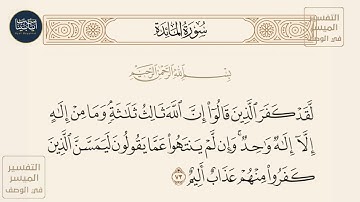 سُورَةُ المَائِدَة
التفسير
الميسر
في الوصف
بِسْمِ اللَّهِ الرَّحْمَٰنِ الرَّحِيمِ
لَّقَدْ كَفَرَ الَّذِينَ قَالُوا إِنَّ اللَّهَ ثَالِثُ ثَلَاثَةٍ وَمَا مِنْ إِلَٰهٍ
إِلَّا إِلَٰهٌ وَاحِدٌ وَإِن لَّمْ يَنتَهُوا عَمَّا يَقُولُونَ لَيَمَسَّنَّ الَّذِينَ
كَفَرُوا مِنْهُمْ عَذَابٌ أَلِيمٌ ٧٣
التفسير
الميسر
في الوصف